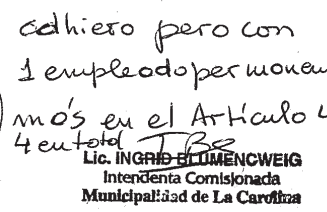 adhiero pero con
1 empleado permanen
) más en el Artículo 4
4 en total
Lic. INGRID BLUMENCWEIG
Intendenta Comisionada
Municipalidad de La Carolina